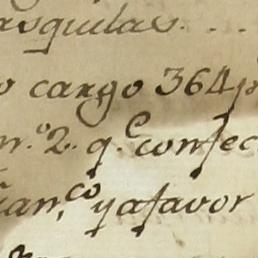 asquilas. . . .
o cargo 364p
n.º 2. q.e confec
ñan,co y afavor